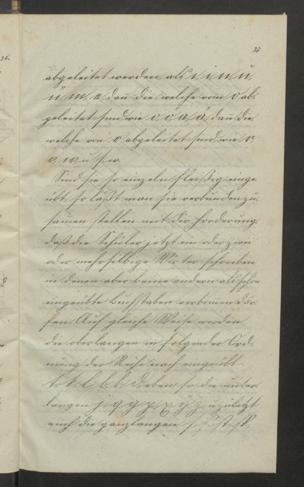 abgeleitet werden als i i n u ü
ü m e dan die welche vom o ab
geleitet sind wie o a a ä, dan die
welche von v abgeleitet sind wie v
w u. s. w.
Sind sie so einzeln fleißig einge
übt, so läßt man sie verbunden zu
sammen stellen mit der Forderung
daß die Schüler jetzt ein oder zwei
oder mehrsilbige Wörter schreiben
in denen aber keine andern als schon
eingeübte Buchstaben vorkommen dür
fen. Auf gleiche Weise werden
die oberlangen in folgender Ord
nung der Reihe nach eingeübt
t l b k Eben so die unter
langen j g q p x y z u zuletzt
auch die ganzlangen f ß st